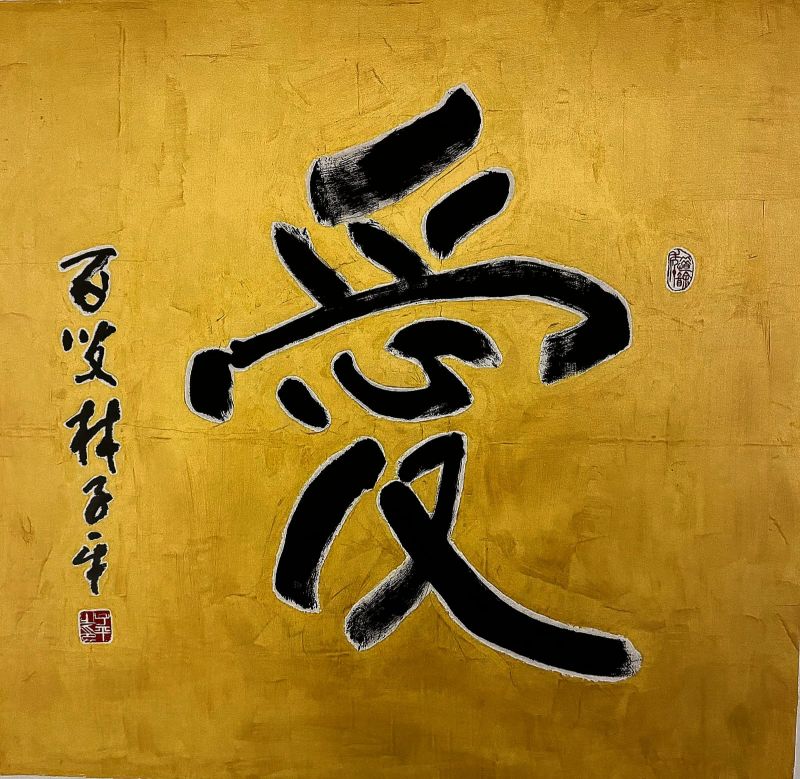 愛
百叟林子平